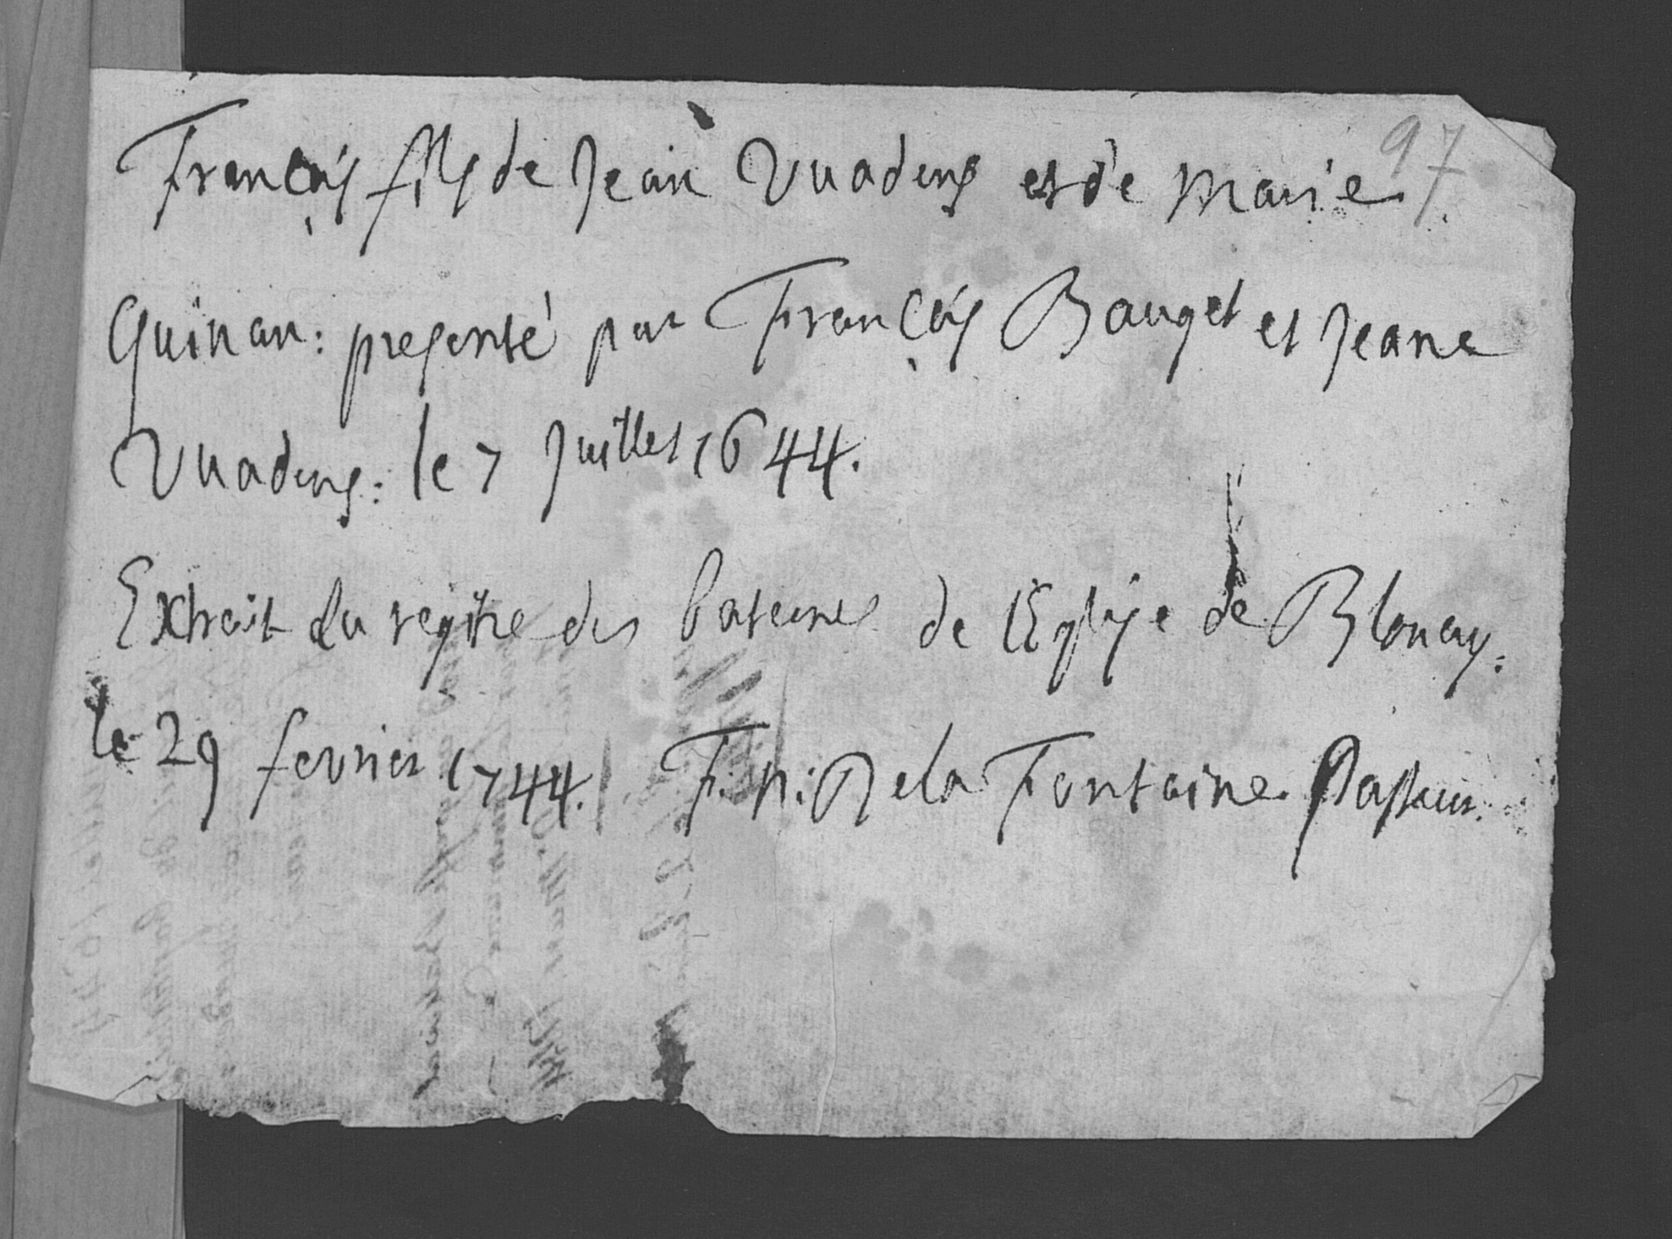 97
François fils de Jean Vuadens et de Marie
Quinan: presenté par François Bauget et Jeane
Vuadens: le 7 Juillet 1644.
Extrait du regitre des batemes de l'Eglise de Blonay:
le 29 fevrier 1744. F: n: De la Fontaine Pasteur.